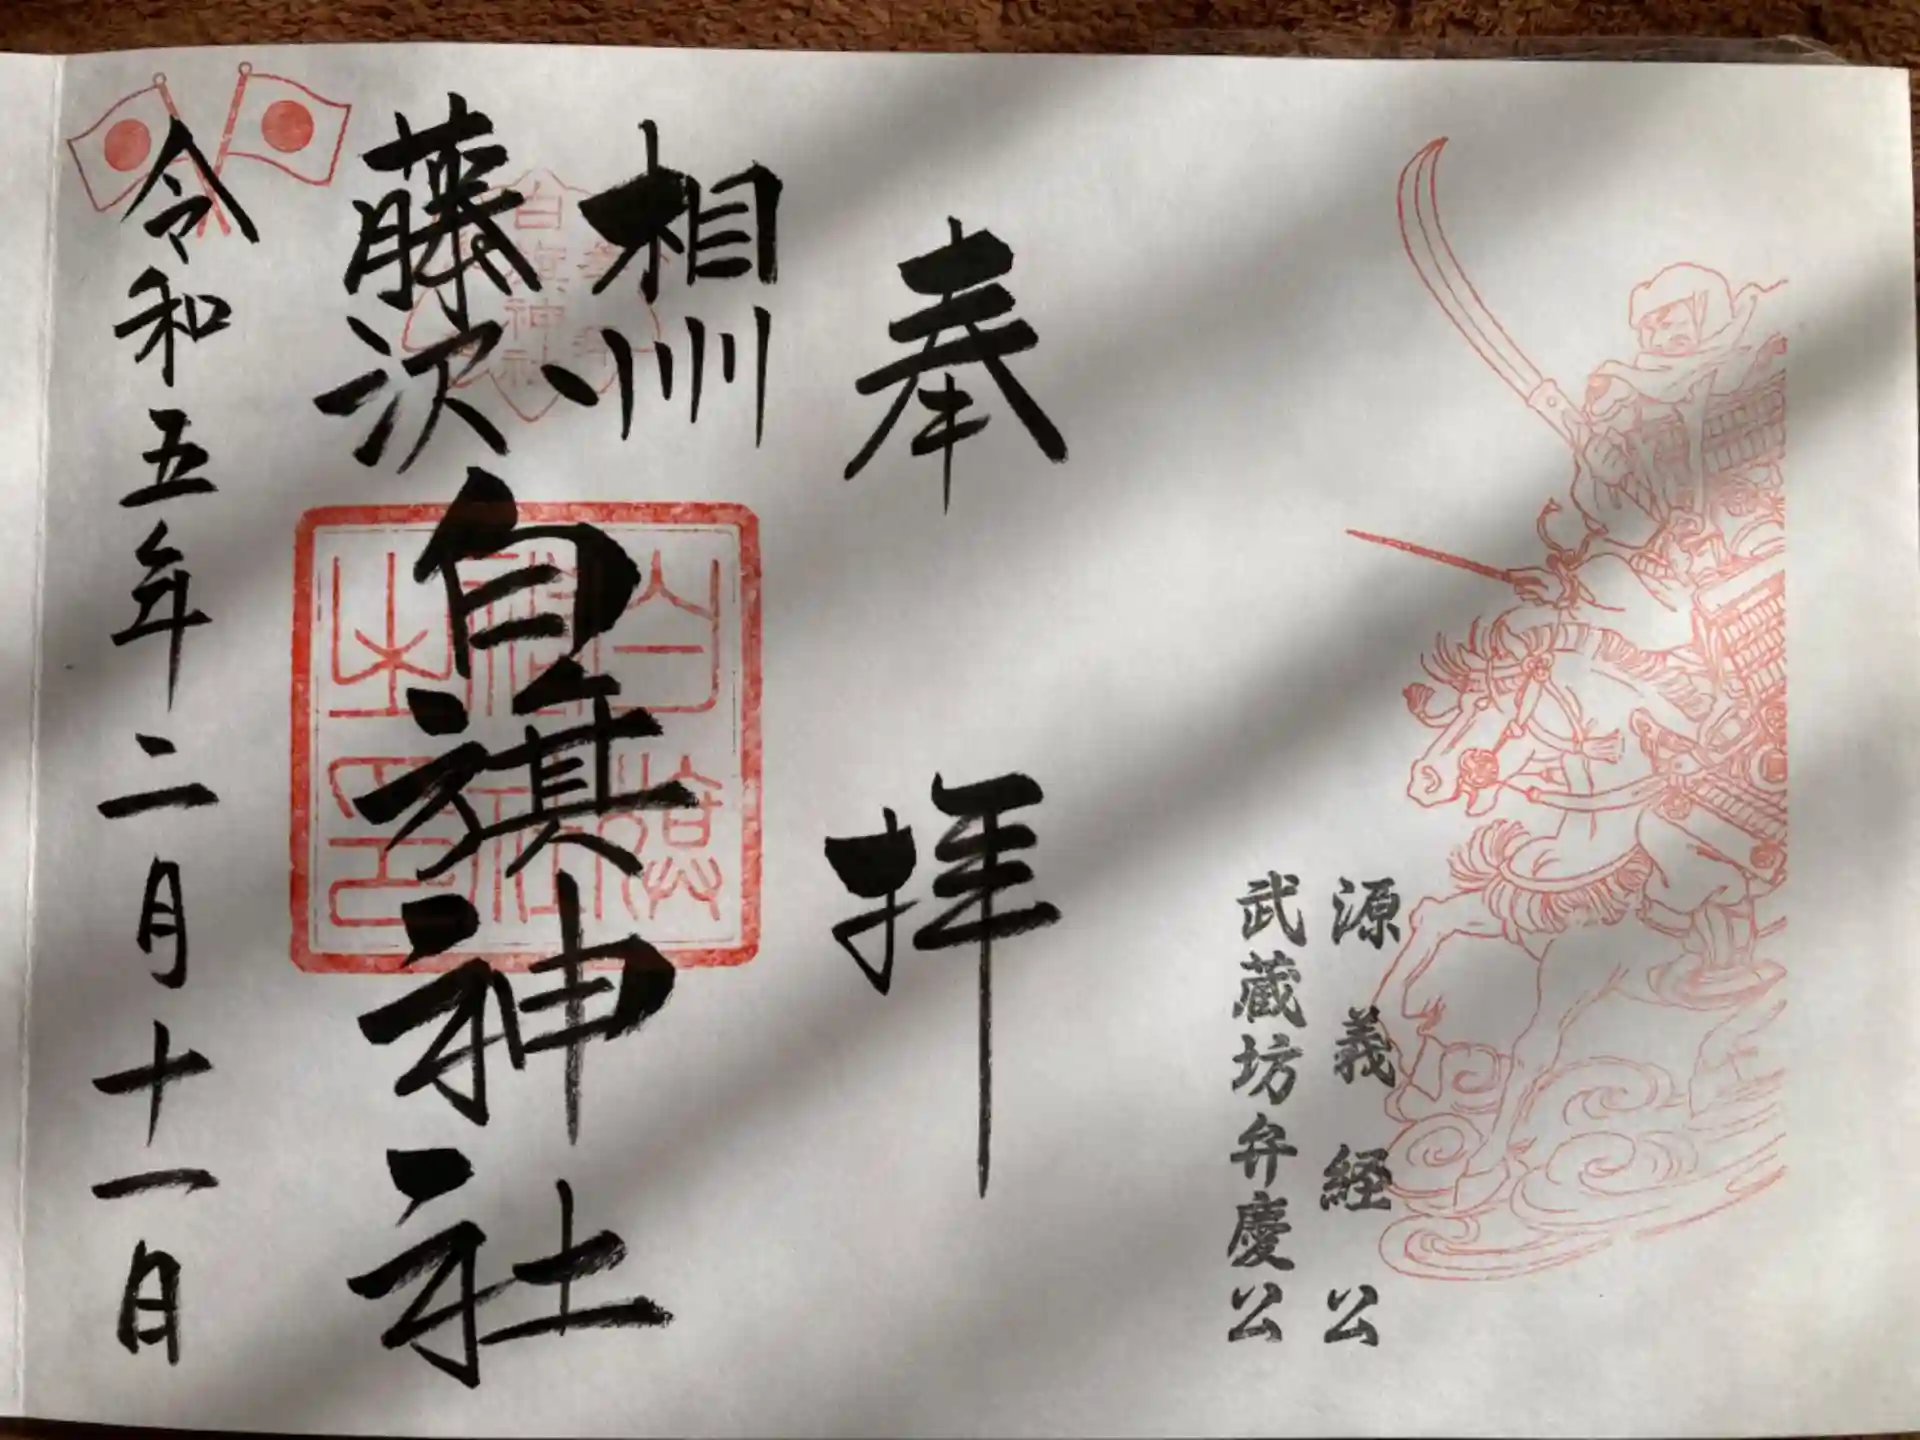 源義経公
武蔵坊弁慶公
奉拝
相州
藤沢
白旗神社
白旗神社
令和五年二月十一日